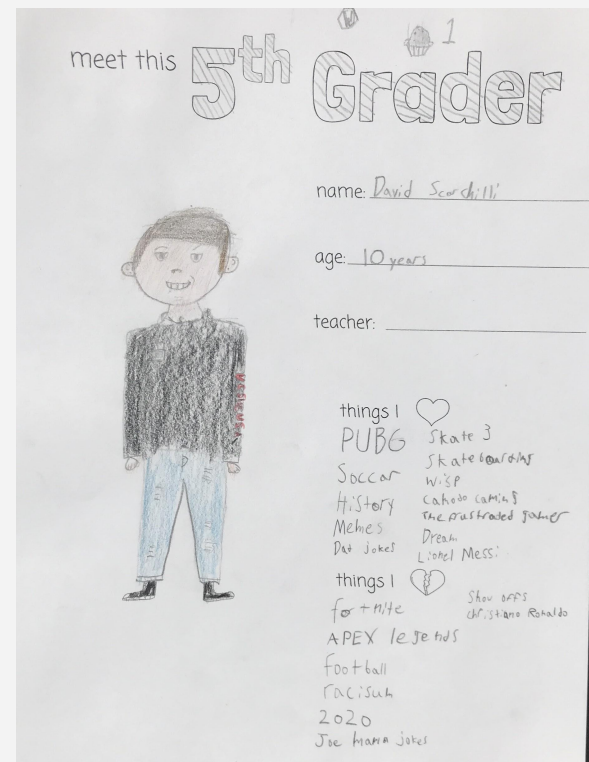 1
meet this 5th Grader
name: David Scorchilli
age: 10 years
teacher:
things I
PUBG
Soccar
History
Memes
Dat jokes
Skate 3
Skateboarding
Wisp
The frustraded gamer
Dream
Lionel Messi
things I
fortnite
APEX legends
football
racisum
2020
Joe mama jokes
Show offs
christiano Ronaldo